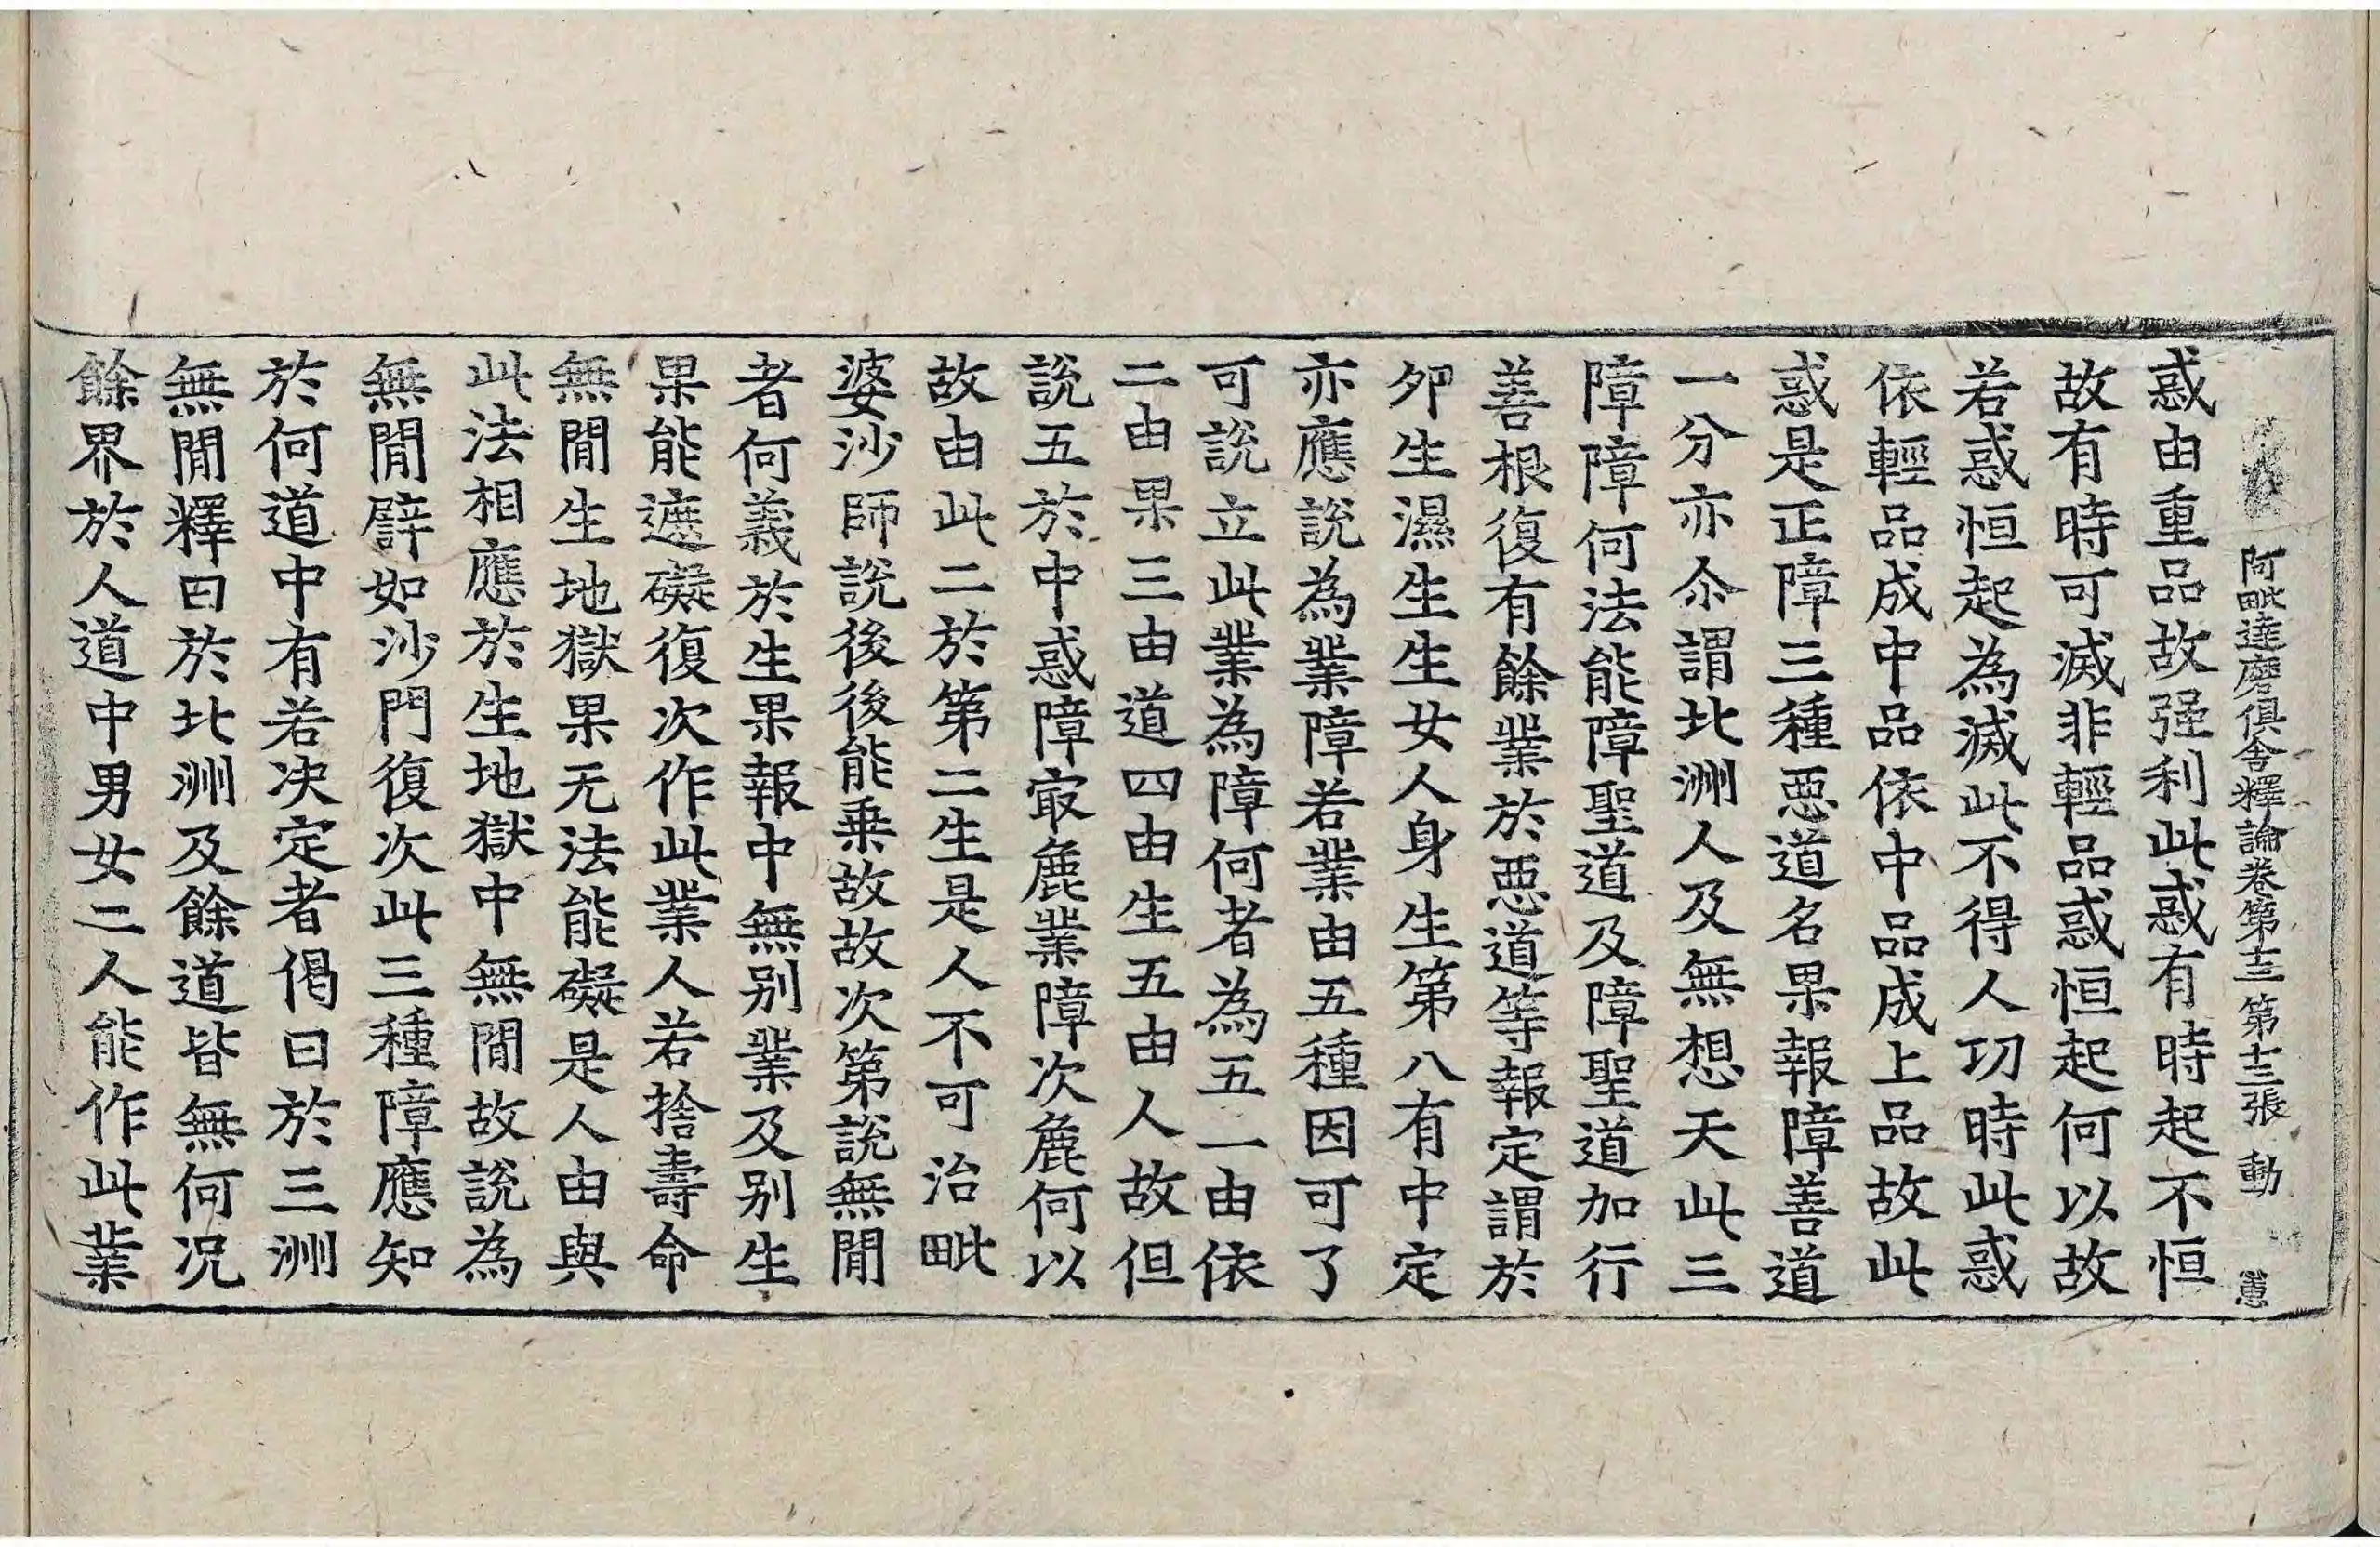 阿毗達磨俱舍釋論卷第十三 第十三張 動
惑由重品故强利此惑有時起不恒
故有時可滅非輕品惑恒起何以故
若惑恒起為滅此不得人功時此惑
依輕品成中品依中品成上品故此
惑是正障三種惡道名果報障善道
一分亦尒謂北洲人及無想天此三
障障何法能障聖道及障聖道加行
善根復有餘業於惡道等報定謂於
夘生濕生生女人身生第八有中定
亦應說為業障若業由五種因可了
可說立此業為障何者為五一由依
二由果三由道四由生五由人故但
說五於中惑障㝡麁業障次麁何以
故由此二於第二生是人不可治毗
婆沙師說後後能乗故故次第說無間
者何義於生果報中無别業及别生
果能遮礙復次作此業人若捨壽命
無間生地獄果无法能礙是人由與
此法相應於生地獄中無間故說為
無間譬如沙門復次此三種障應知
於何道中有若决定者偈曰於三洲
無間釋曰於北洲及餘道皆無何况
餘界於人道中男女二人能作此業